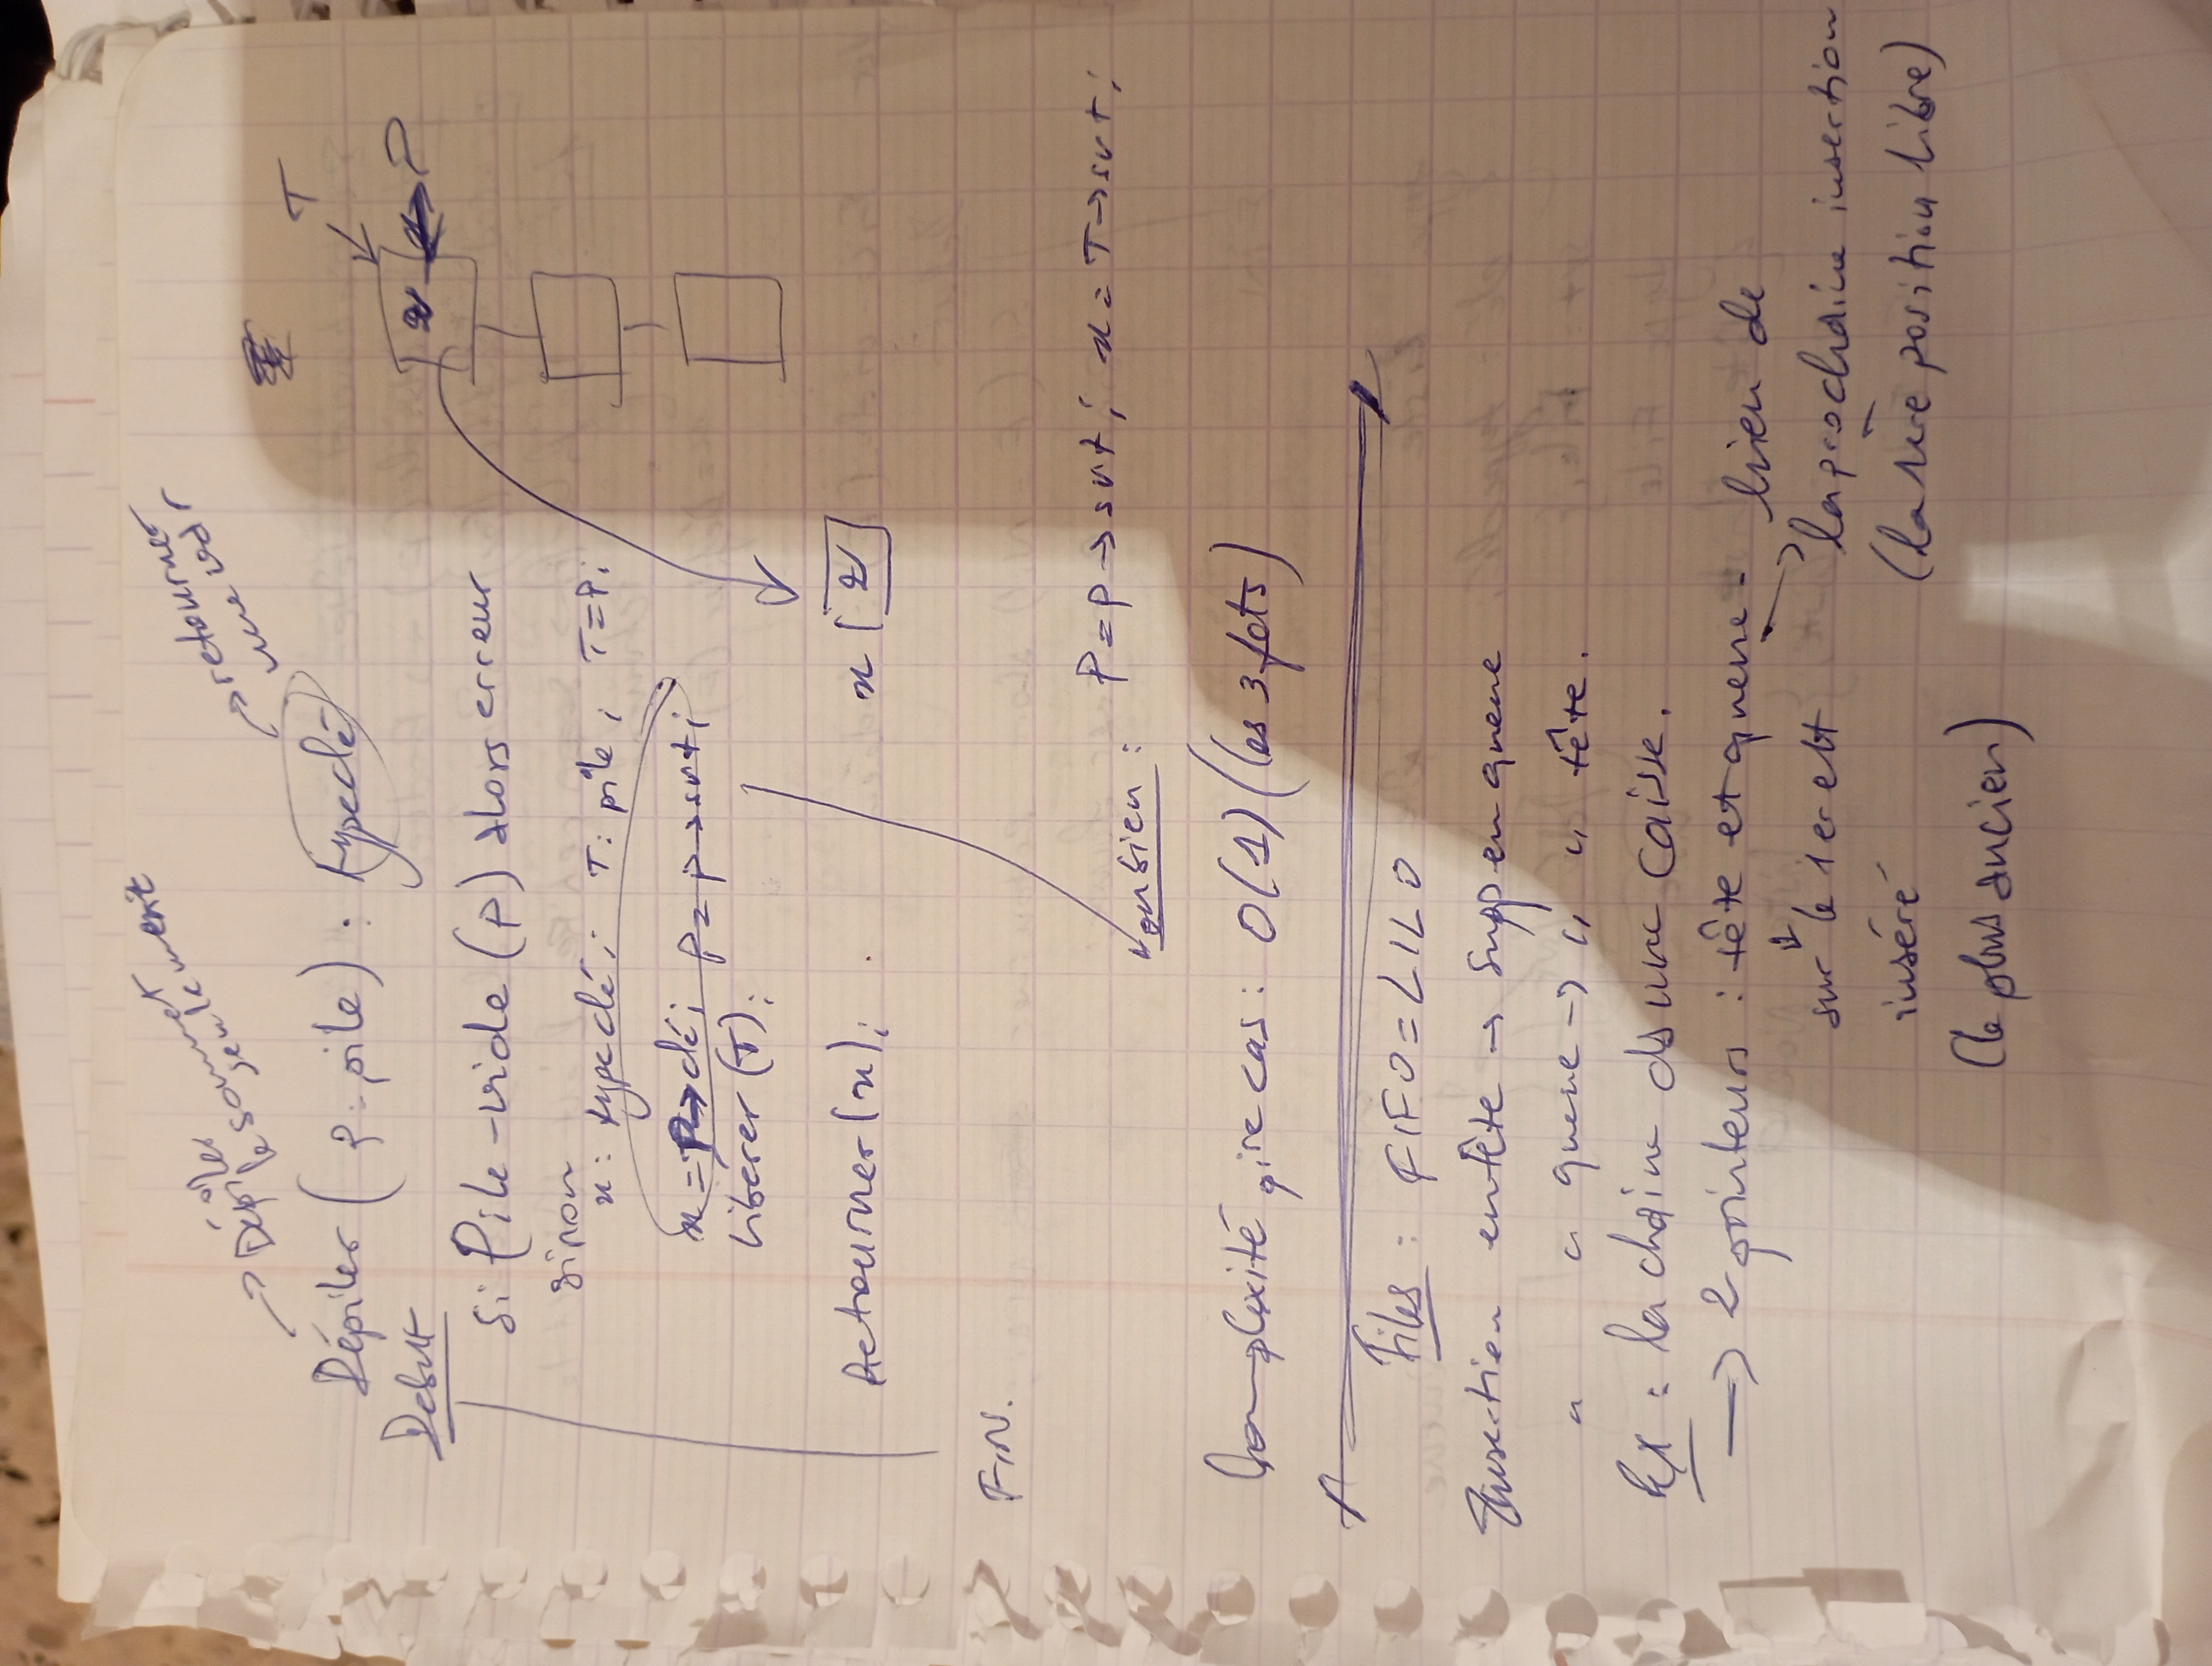 → Dépiler
le sommet
seulement
→ retourner
une val
Dépiler ( p : pile ) : typeclé
Debut
Si Pile-vide (p) alors erreur
sinon
x : typeclé ; T : pile ; T=P;
x = P→clé ; p = p→svt ;
Libérer (T) ;
Retourner (x) ;
FIN.
T
P
x
ou bien : P = p → svt ; x = T → svt ;
Complexité pire cas : O(1) (les 3 fcts)
Files : FIFO = LILO
Insertion en tête → Supp en queue
" " queue → " " tête .
Ex : la chaine ds une caisse .
→ 2 pointeurs : tête et queue
→ lieu de
sur le 1er elt
la prochaine insertion
inséré
(la 1ère position libre)
(le plus ancien)